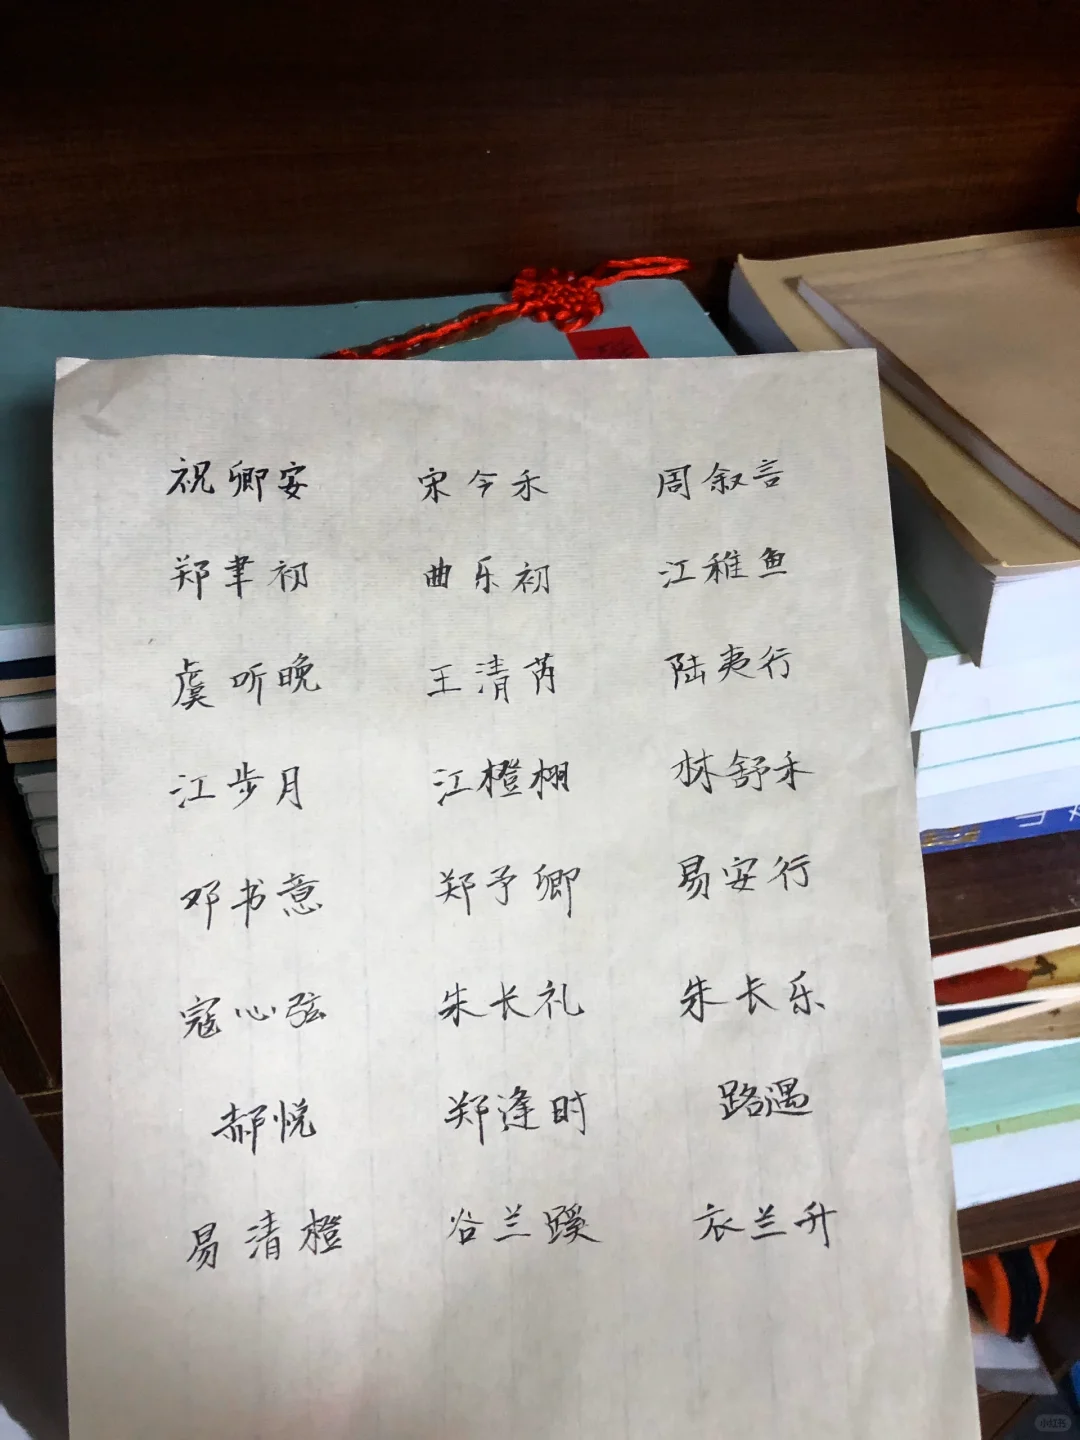 祝卿安 宋今禾 周叙言
郑聿初 曲乐初 江稚鱼
虞听晚 王清芮 陆夷行
江步月 江橙栩 林舒禾
邓书意 郑予卿 易安行
寇心弦 朱长礼 朱长乐
郝悦 郑逢时 路遇
易清橙 谷兰蹊 衣兰升
小红书